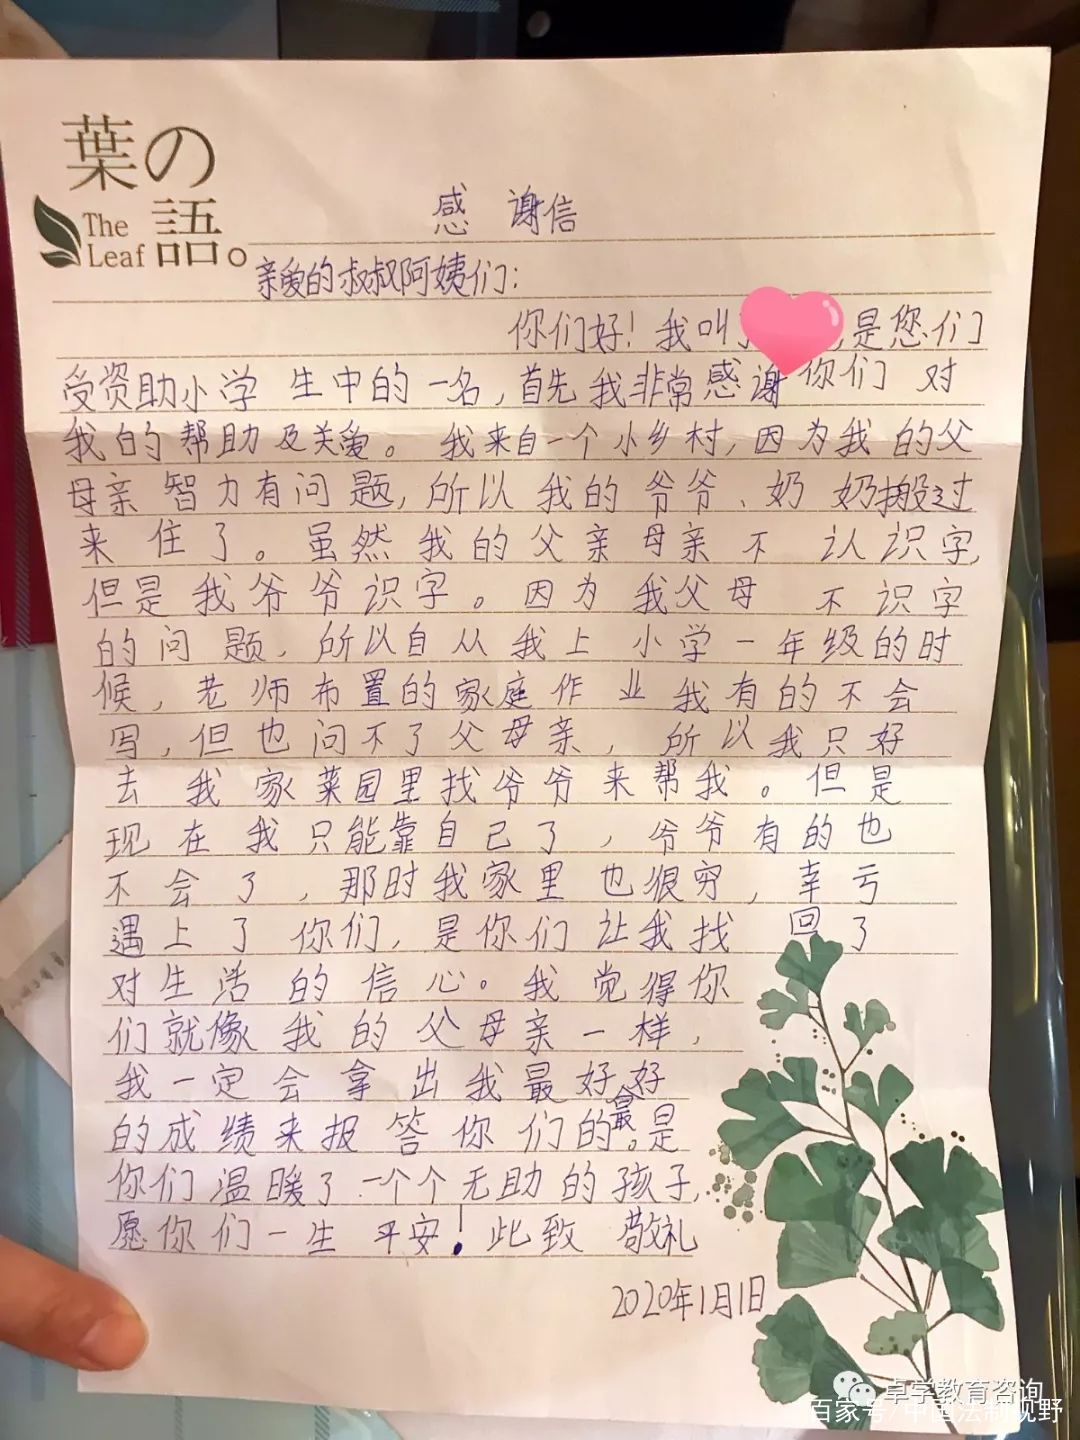 葉の
The
Leaf
語。
感谢信
亲爱的叔叔阿姨们：
你们好！我叫是您们
受资助小学生中的一名，首先我非常感谢你们对
我的帮助及关爱。我来自一个小乡村，因为我的父
母亲智力有问题，所以我的爷爷、奶奶搬过
来住了。虽然我的父亲母亲不认识字，
但是我爷爷识字。因为我父母不识字
的问题，所以自从我上小学一年级的时
候，老师布置的家庭作业我有的不会
写，但也问不了父母亲，所以我只好
去我家菜园里找爷爷来帮我。但是
现在我只能靠自己了，爷爷有的也
不会了，那时我家里也很穷，幸亏
遇上了你们，是你们让我找回了
对生活的信心。我觉得你
们就像我的父母亲一样，
我一定会拿出我最好好
的成绩来报答你们的最。是
你们温暖了一个个无助的孩子，
愿你们一生平安！此致敬礼
2020年1月1日
卓学教育咨询
百家号/中国法制视野